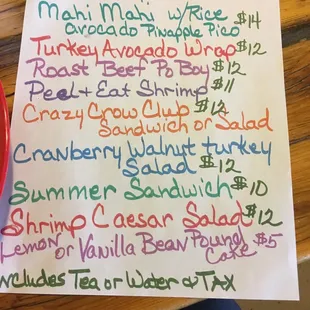 Mahi Mahi w/Rice $14
Avocado Pineapple Pico
Turkey Avocado Wrap $12
Roast Beef Po Boy $12
Peel + Eat Shrimp $11
Crazy Crow Club $12
Sandwich or Salad
Cranberry Walnut turkey
Salad $12
Summer Sandwich $10
Shrimp Caesar Salad $12
Lemon or Vanilla Bean Pound $5
Cake
Includes Tea or Water & TAX